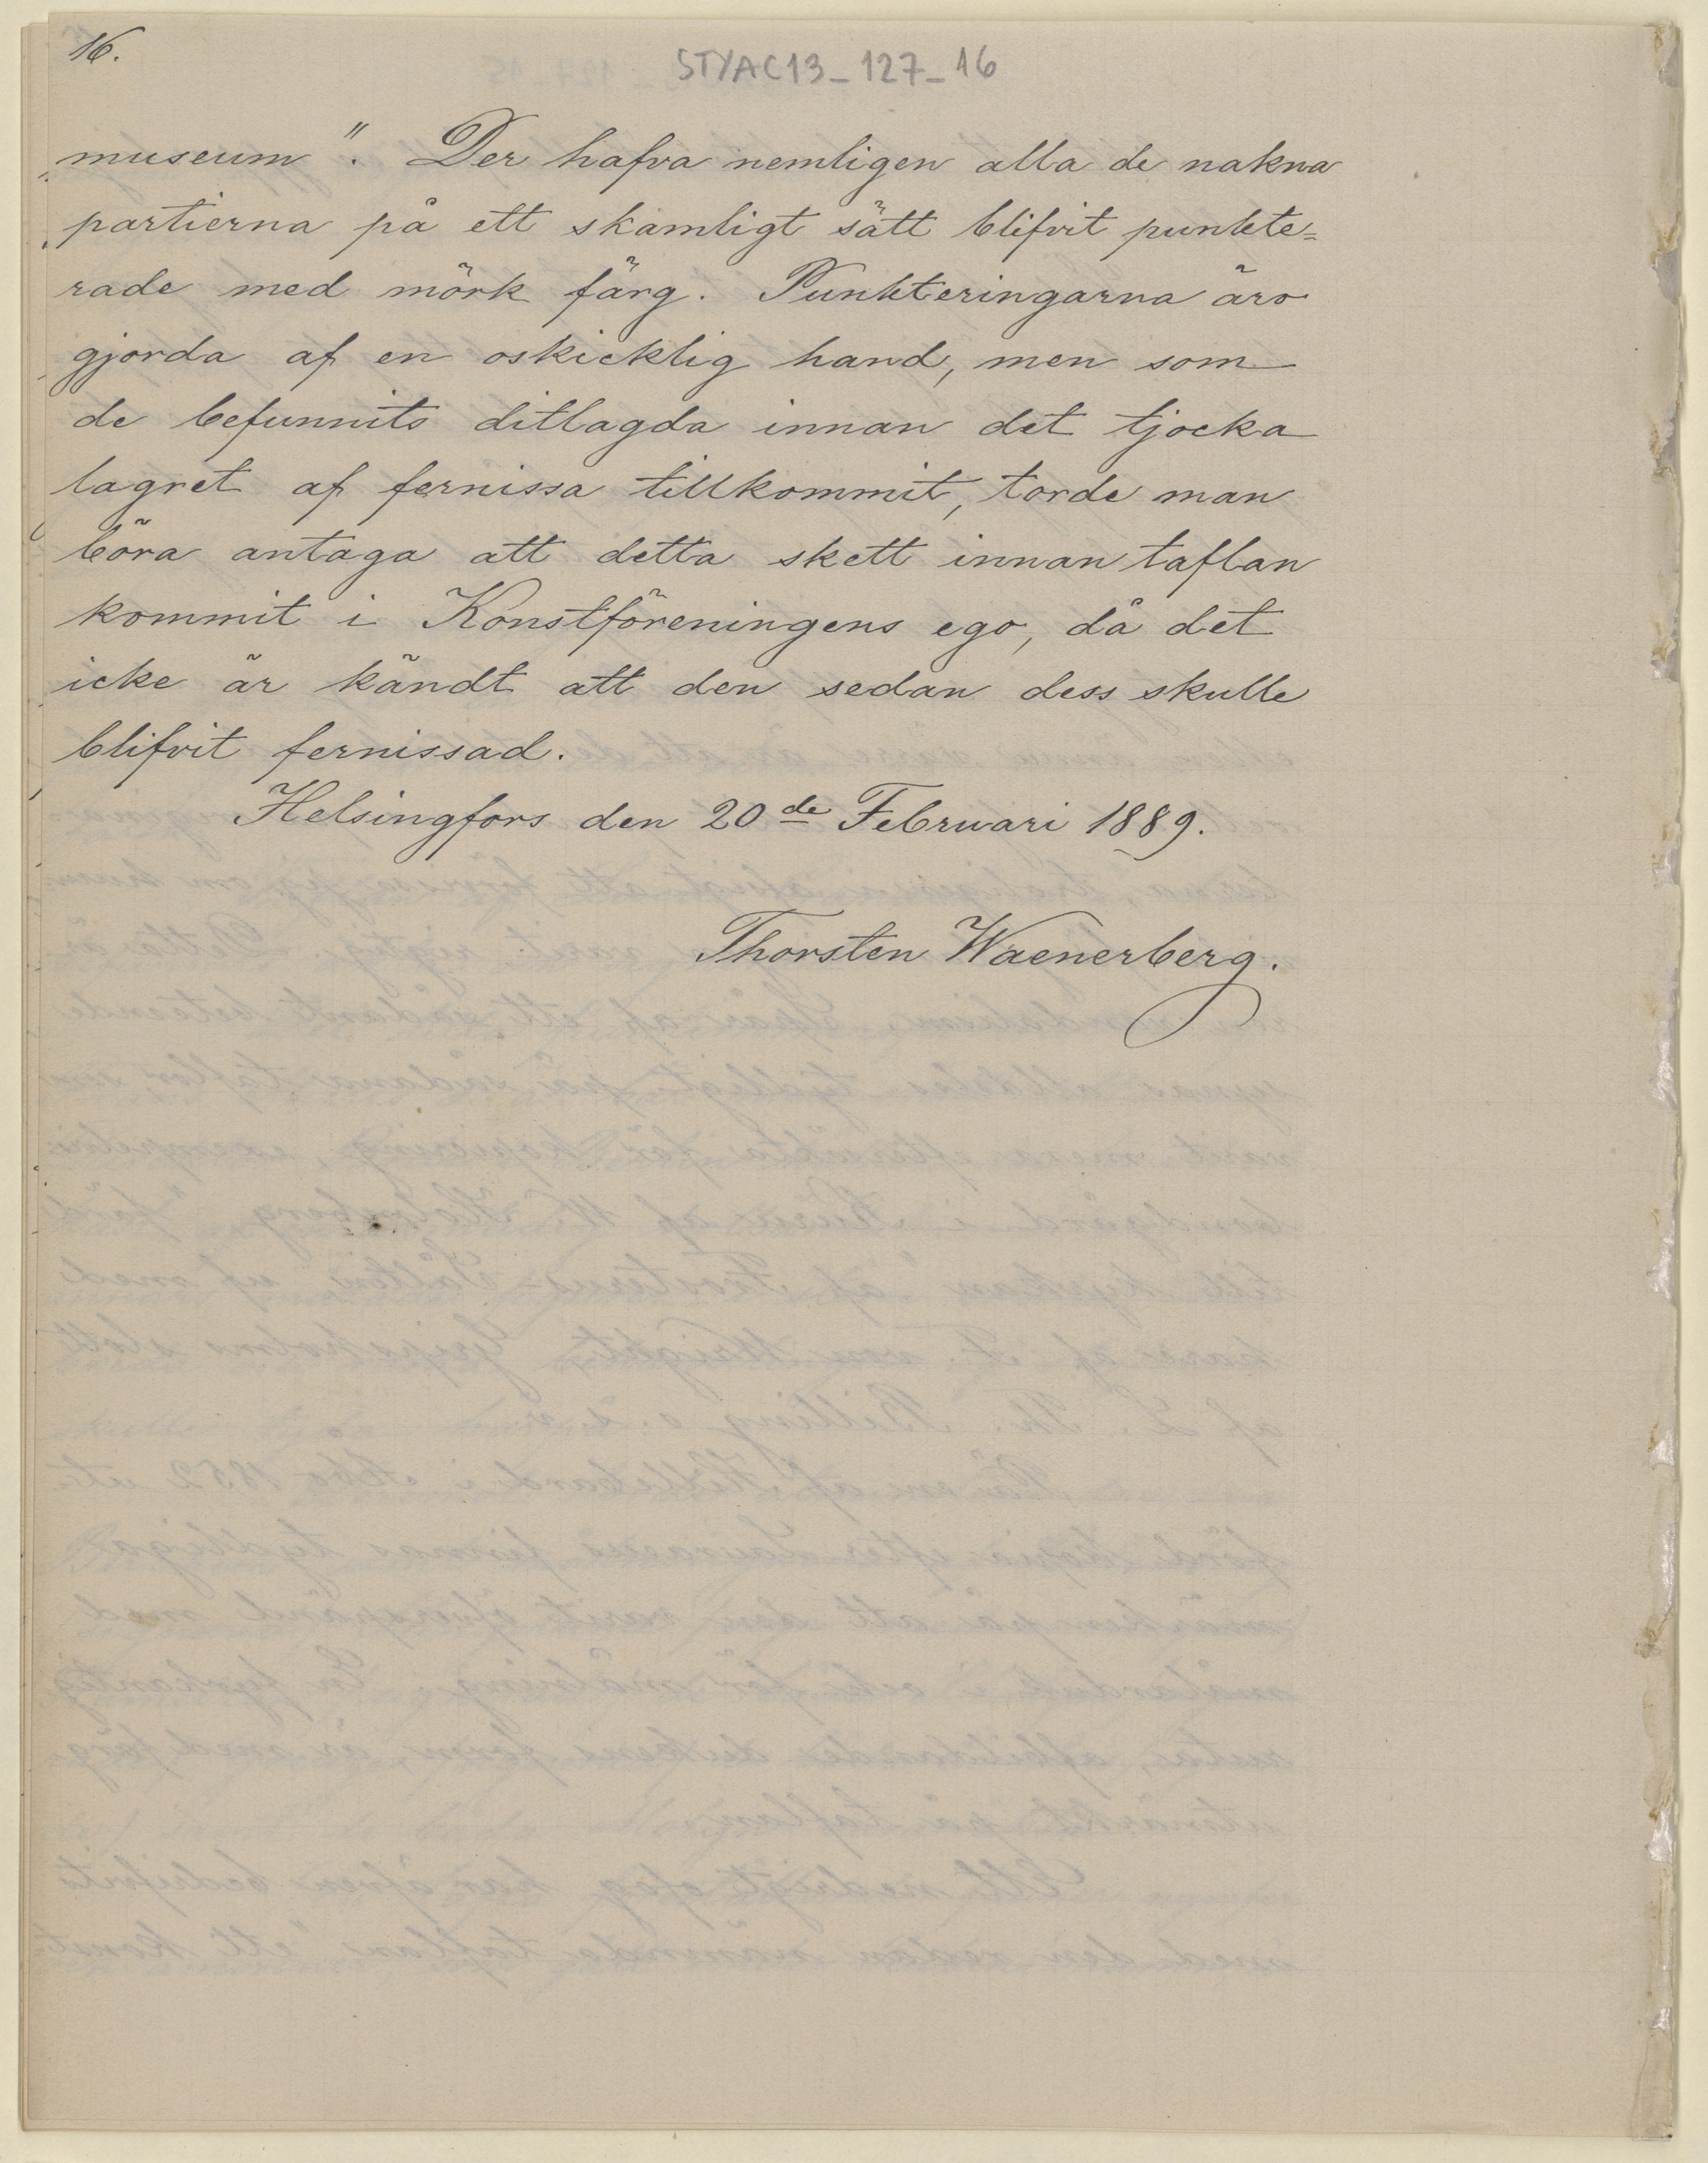 16.
STYAC13_127_16
museum". Der hafva nemligen alla de nakna
partierna på ett skamligt sätt blifvit punkte=
rade med mörk färg. Punkteringarna äro
gjorda af en oskicklig hand, men som
de befunnits ditlagda innan det tjocka
lagret af fernissa tillkommit, torde man
böra antaga att detta skett innan taflan
kommit i Konstföreningens ego, då det
icke är kändt att den sedan dess skulle
blifvit fernissad.
Helsingfors den 20de Februari 1889.
Thorsten Waenerberg.